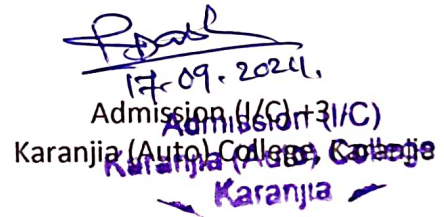 17-09-2024.
Admission (I/C) +3
Karanjia (Auto) College, Karanjia
Admission (I/C)
Karanjia (Auto) College
Karanjia